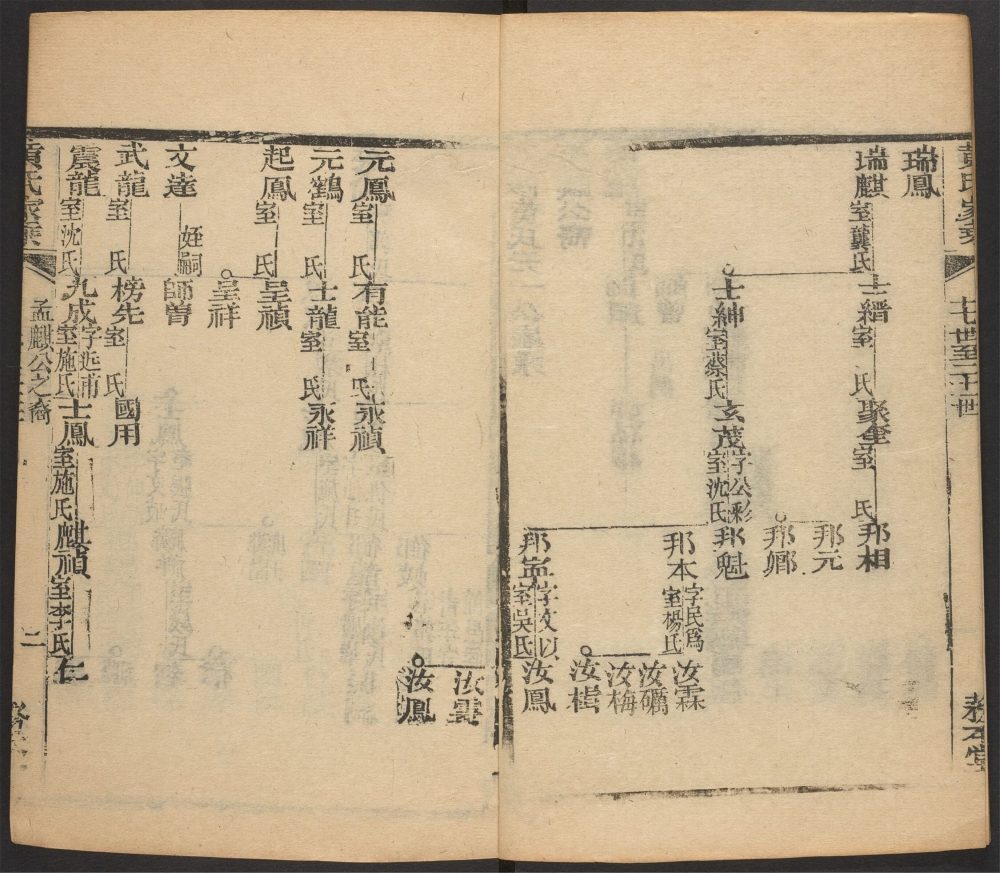 黃氏家乘
七世至十一世
敦本堂
瑞鳳
瑞麒 室龔氏 士縉 室 氏 聚奎 室 氏 邦相
邦元
邦鄉
士紳 室蔡氏 玄茂 字公彩 室沈氏 邦魁
邦本 字民為 室楊氏 汝霖
汝礪
汝梅
汝楫
邦寧 字文以 室吳氏 汝鳳
汝雲
汝鳳
元鳳 室 氏 有能 室 氏 永禎
元鶴 室 氏 士龍 室 氏 永祥
起鳳 室 氏 呈禎
呈祥
文達 姪嗣 師曾
武龍 室 氏 榜先 室 氏 國用
震龍 室沈氏 九成 室施氏 士鳳 室施氏 麒禎 室李氏
黃氏家乘
孟麒公之裔
二